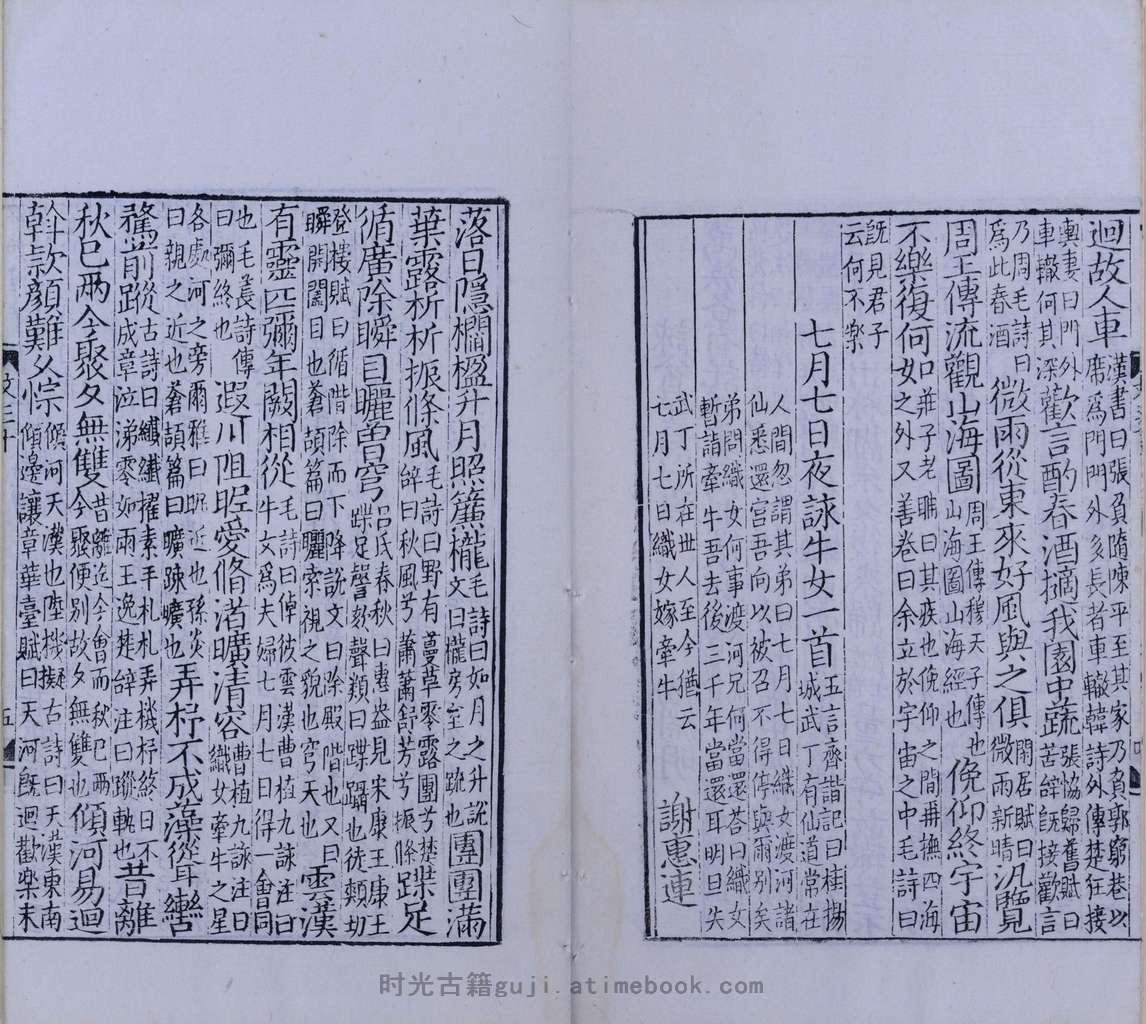 迴故人車漢書曰張負隨陳平至其家乃負郭窮巷以
席為門門外多長者車轍韓詩外傳楚狂接
輿妻曰門外
車轍何其深歡言酌春酒摘我園中蔬張協歸舊賦曰
苦辞既接歡言
乃周毛詩曰
為此春酒微雨從東來好風與之俱閑居賦曰
微雨新晴汎覽
周王傳流觀山海圖周王傳穆天子傳也
山海圖山海經也俛仰終宇宙
不樂復何如莊子老聃曰其疾也俛仰之間再撫四海
之外又善卷曰余立於宇宙之中毛詩曰
既見君子
云何不樂
七月七日夜詠牛女一首五言齊諧記曰桂陽
城武丁有仙道常在
人間忽謂其弟曰七月七日織女渡河諸
仙悉還宮吾向以被召不得停與爾別矣
弟問織女何事渡河兄何當還荅曰織女
暫詣牽牛吾去後三千年當還耳明日失
武丁所在世人至今猶云
七月七日織女嫁牽牛
謝惠連
落日隱櫩楹升月照簾櫳毛詩曰如月之升說
文曰櫳房室之疏也團團滿
葉露析析振條風毛詩曰野有蔓草零露團兮楚
辞曰秋風兮蕭蕭舒芳兮振條蹀足
循廣除瞬目曬曾穹呂氏春秋曰惠盎見宋康王康王
蹀足聲欬聲類曰蹀躡也徒頰切
登樓賦曰循階除而下降說文曰除殿階也又曰
瞬開闔目也蒼頡篇曰曬索視之貌也穹天也雲漢
有靈匹彌年闕相從毛詩曰倬彼雲漢曹植九詠注曰
牛女為夫婦七月七日得一會同
也毛萇詩傳
曰彌終也遐川阻昵愛脩渚曠清容曹植九詠注曰
織女牽牛之星
各處河之旁爾雅曰昵近也孫炎
曰親之近也蒼頡篇曰曠踈曠也弄杼不成藻聳轡
騖前蹤古詩曰纖纖擢素手札札弄機杼終日不
成章泣涕零如雨王逸楚辞注曰蹤軌也昔離
秋已兩今聚夕無雙昔離迄今會而秋已兩
今聚便別故夕無雙也傾河易迴
斡款顏難久悰傾河天漢也陸機擬古詩曰天漢東南
傾邊讓章華臺賦曰天河既迴歡樂未
文三十
五
时光古籍guji.atimebook.com